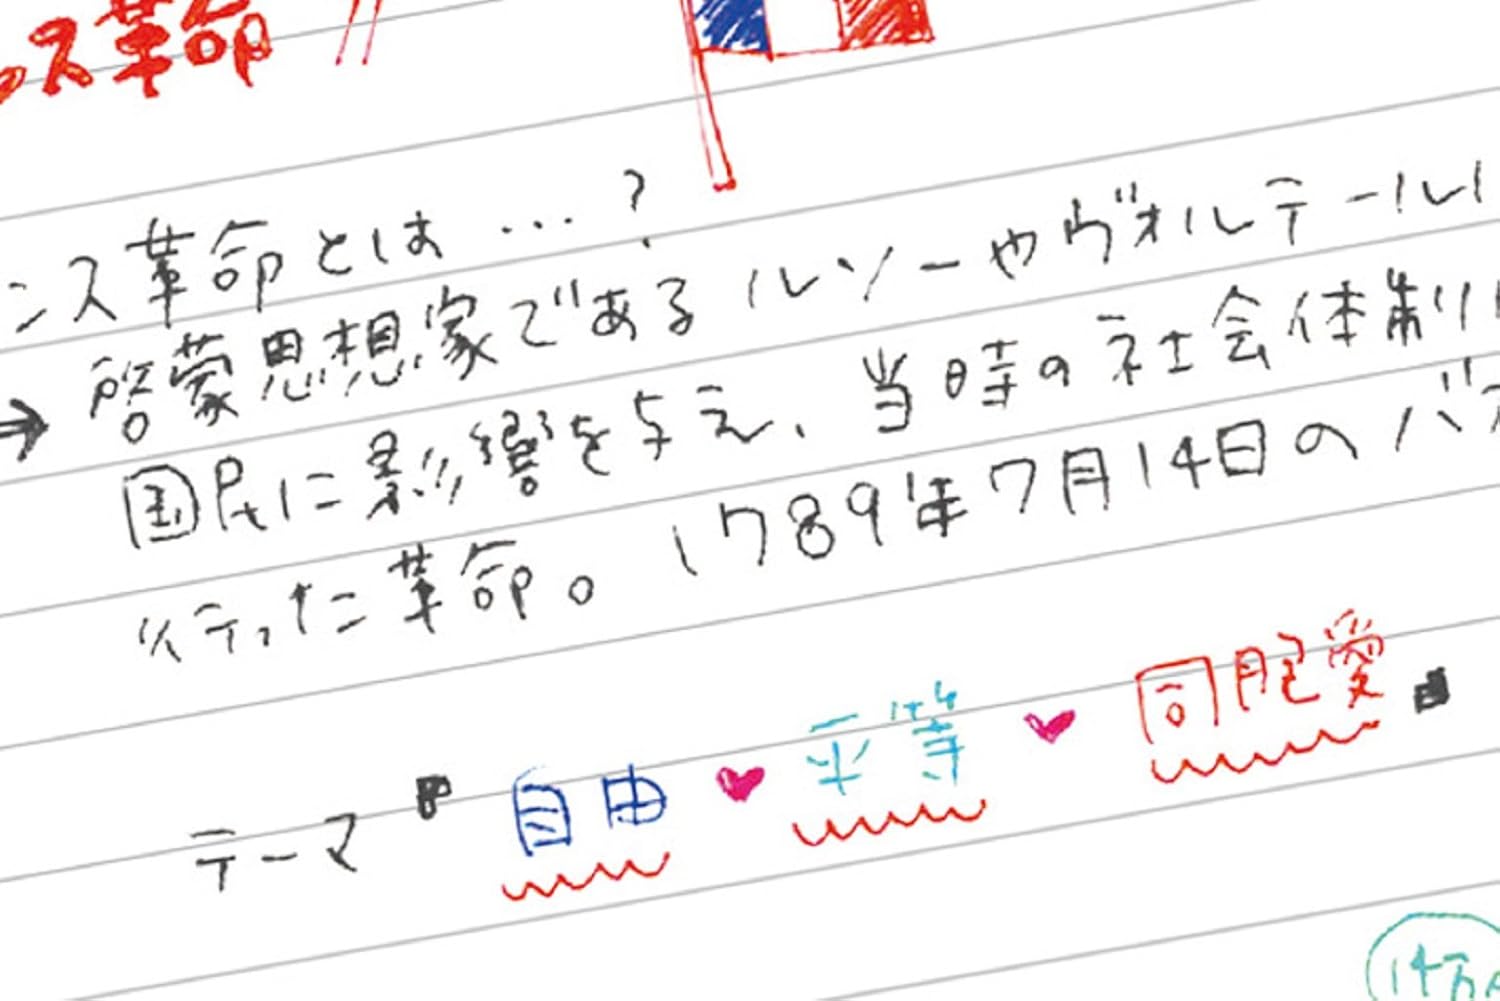 ス革命
ンス革命とは…?
→ 啓蒙思想家であるルソーやヴォルテール
国民に影響を与え、当時の社会体制
行った革命。1789年7月14日のバ
テーマ『自由♥平等♥同胞愛』
14万